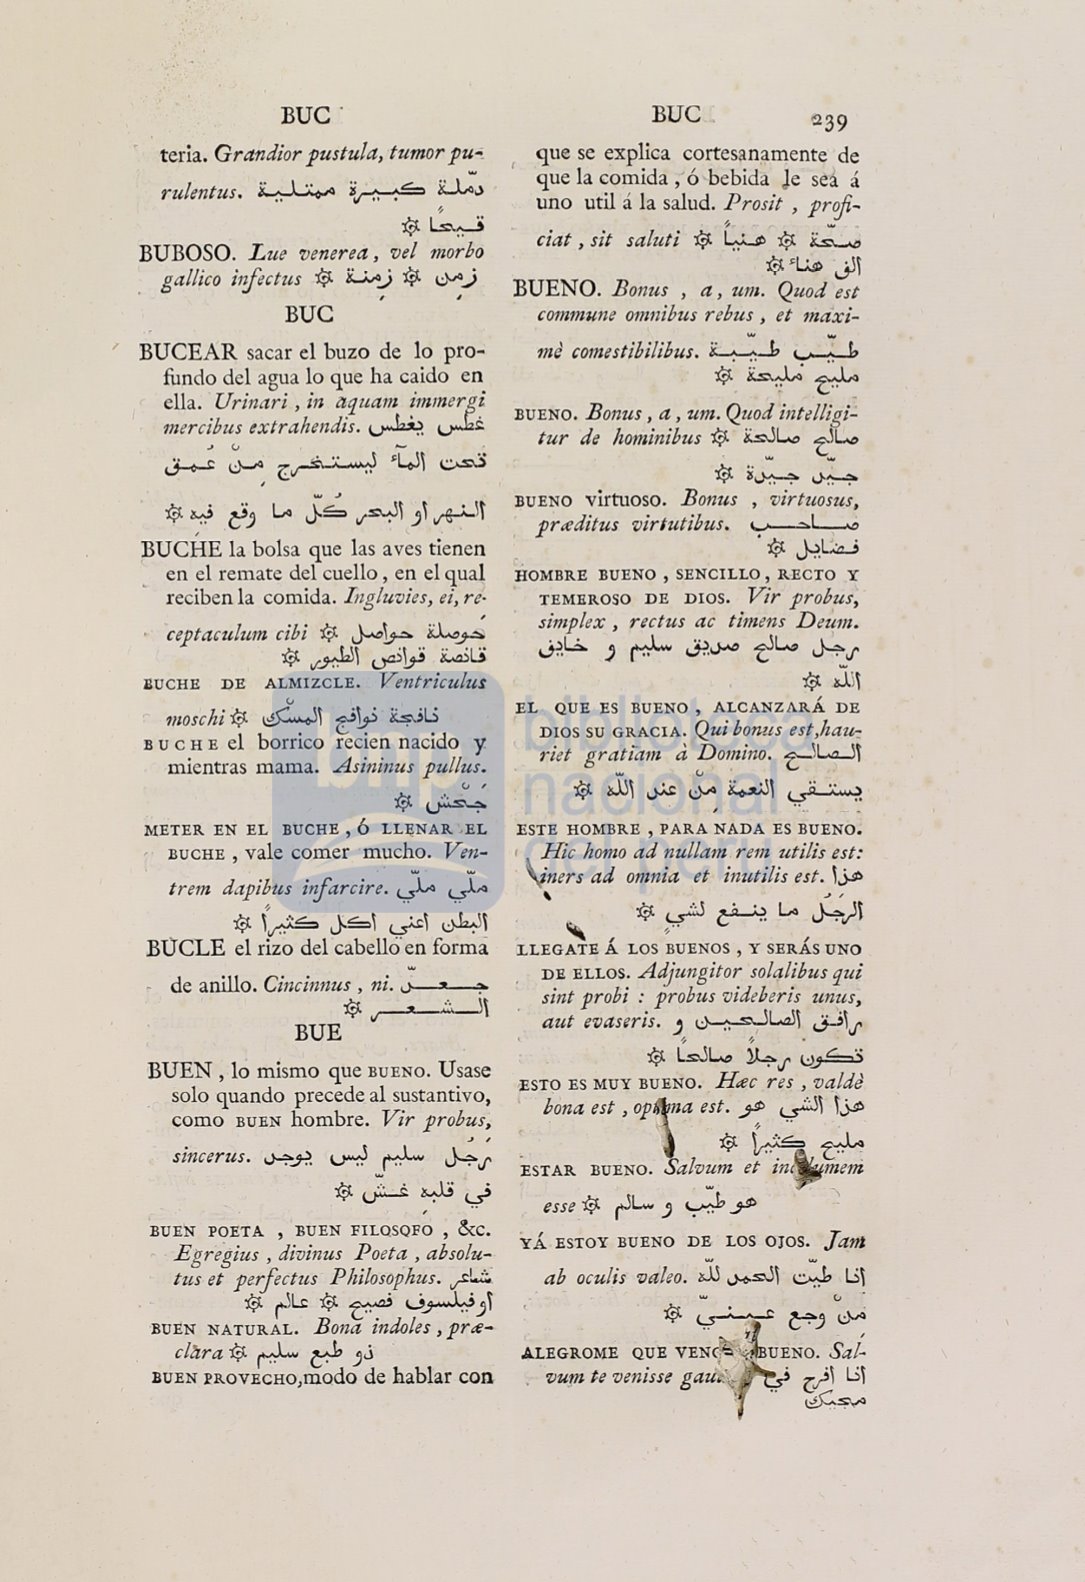 BUC
teria. Grandior pustula, tumor pu-
rulentus. دمّلة كبيرة ممتلية
قيحًا ۞
BUBOSO. Lue venerea, vel morbo
gallico infectus ۞ زمن ۞ زمنة
BUC
BUCEAR sacar el buzo de lo pro-
fundo del agua lo que ha caido en
ella. Urinari, in aquam immergi
mercibus extrahendis. غطس يغطس
تحت المآء ليستخرج من عُمق
النهر او البحر كُلّ ما وقع فيه ۞
BUCHE la bolsa que las aves tienen
en el remate del cuello, en el qual
reciben la comida. Ingluvies, ei, re-
ceptaculum cibi ۞ حوصلة حواصل
قانصة قوانص الطيور ۞
BUCHE DE ALMIZCLE. Ventriculus
moschi ۞ نافجة نوافج المسْك
BUCHE el borrico recien nacido y
mientras mama. Asininus pullus.
جحْش ۞
METER EN EL BUCHE, Ó LLENAR EL
BUCHE, vale comer mucho. Ven-
trem dapibus infarcire. ملّي ملّي
البطن اعني اكل كثيرًا ۞
BUCLE el rizo del cabello en forma
de anillo. Cincinnus, ni. جعدّ
الشعر ۞
BUE
BUEN, lo mismo que BUENO. Usase
solo quando precede al sustantivo,
como BUEN hombre. Vir probus,
sincerus. رجُل سليم ليس يوجد
في قلبه غشّ ۞
BUEN POETA, BUEN FILOSOFO, &c.
Egregius, divinus Poeta, absolu-
tus et perfectus Philosophus. شاعر
اوفيلسوف فصيح ۞ عالم ۞
BUEN NATURAL. Bona indoles, præ-
clara ۞ ذو طبع سليم
BUEN PROVECHO, modo de hablar con
BUC 239
que se explica cortesanamente de
que la comida, ó bebida le sea á
uno util á la salud. Prosit, profi-
ciat, sit saluti ۞ هنياً ۞ صحّة
الف هناء ۞
BUENO. Bonus, a, um. Quod est
commune omnibus rebus, et maxi-
mè comestibilibus. طيّب طيّبة
مليح مليحة ۞
BUENO. Bonus, a, um. Quod intelligi-
tur de hominibus ۞ صالح صالحة
جيّد جيّدة ۞
BUENO virtuoso. Bonus, virtuosus,
præditus virtutibus. صاحب
فضايل ۞
HOMBRE BUENO, SENCILLO, RECTO Y
TEMEROSO DE DIOS. Vir probus,
simplex, rectus ac timens Deum.
رجل صالح صديق سليم و خايف
اللّه ۞
EL QUE ES BUENO, ALCANZARÁ DE
DIOS SU GRACIA. Qui bonus est, hau-
riet gratiam à Domino. الصالح
يستقي النعمة منْ عند اللّه ۞
ESTE HOMBRE, PARA NADA ES BUENO.
Hic homo ad nullam rem utilis est:
iners ad omnia et inutilis est. هذا
الرجُل ما ينفع لشيٍ ۞
LLEGATE Á LOS BUENOS, Y SERÁS UNO
DE ELLOS. Adjungitor solalibus qui
sint probi: probus videberis unus,
aut evaseris. رافق الصالحين و
تكون رجلاً صالحًا ۞
ESTO ES MUY BUENO. Hæc res, valdè
bona est, optima est. هذا الشي هو
مليح كثيرًا ۞
ESTAR BUENO. Salvum et incolumem
esse ۞ هو طيّب و سالم
YÁ ESTOY BUENO DE LOS OJOS. Jam
ab oculis valeo. انا طيّت الحمد للّه
منْ وجع عينيّ ۞
ALEGROME QUE VENG BUENO. Sal-
vum te venisse انا افرح في
مجيك
bnp biblioteca
nacional
del perú